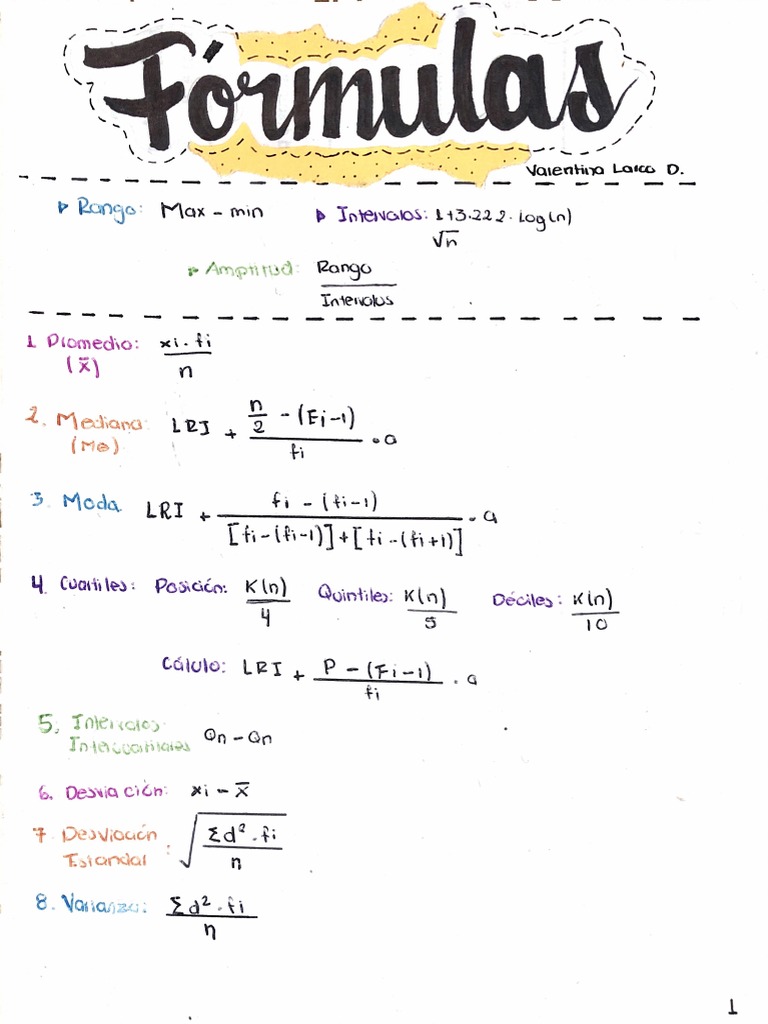 Fórmulas
Valentina Larco D.
Rango: Max - min
Intervalos: 1+3.222.Log(n)
√n
Amplitud: Rango / Intervalos
1 Promedio: xi.fi / n
(x̄)
2. Mediana: LRI + (n/2 - (Fi-1)) / fi . a
(Me)
3. Moda LRI + (fi - (fi-1)) / ([fi-(fi-1)]+[fi-(fi+1)]) . a
4. Cuartiles: Posición: K(n) / 4 Quintiles: K(n) / 5 Déciles: K(n) / 10
Cálculo: LRI + (P - (Fi-1)) / fi . a
5. Intervalos
Intercuartiles Qn - Qn
6. Desviación: xi - x̄
7. Desviación
Estandal : √(Σd².fi / n)
8. Varianza: Σd².fi / n
1